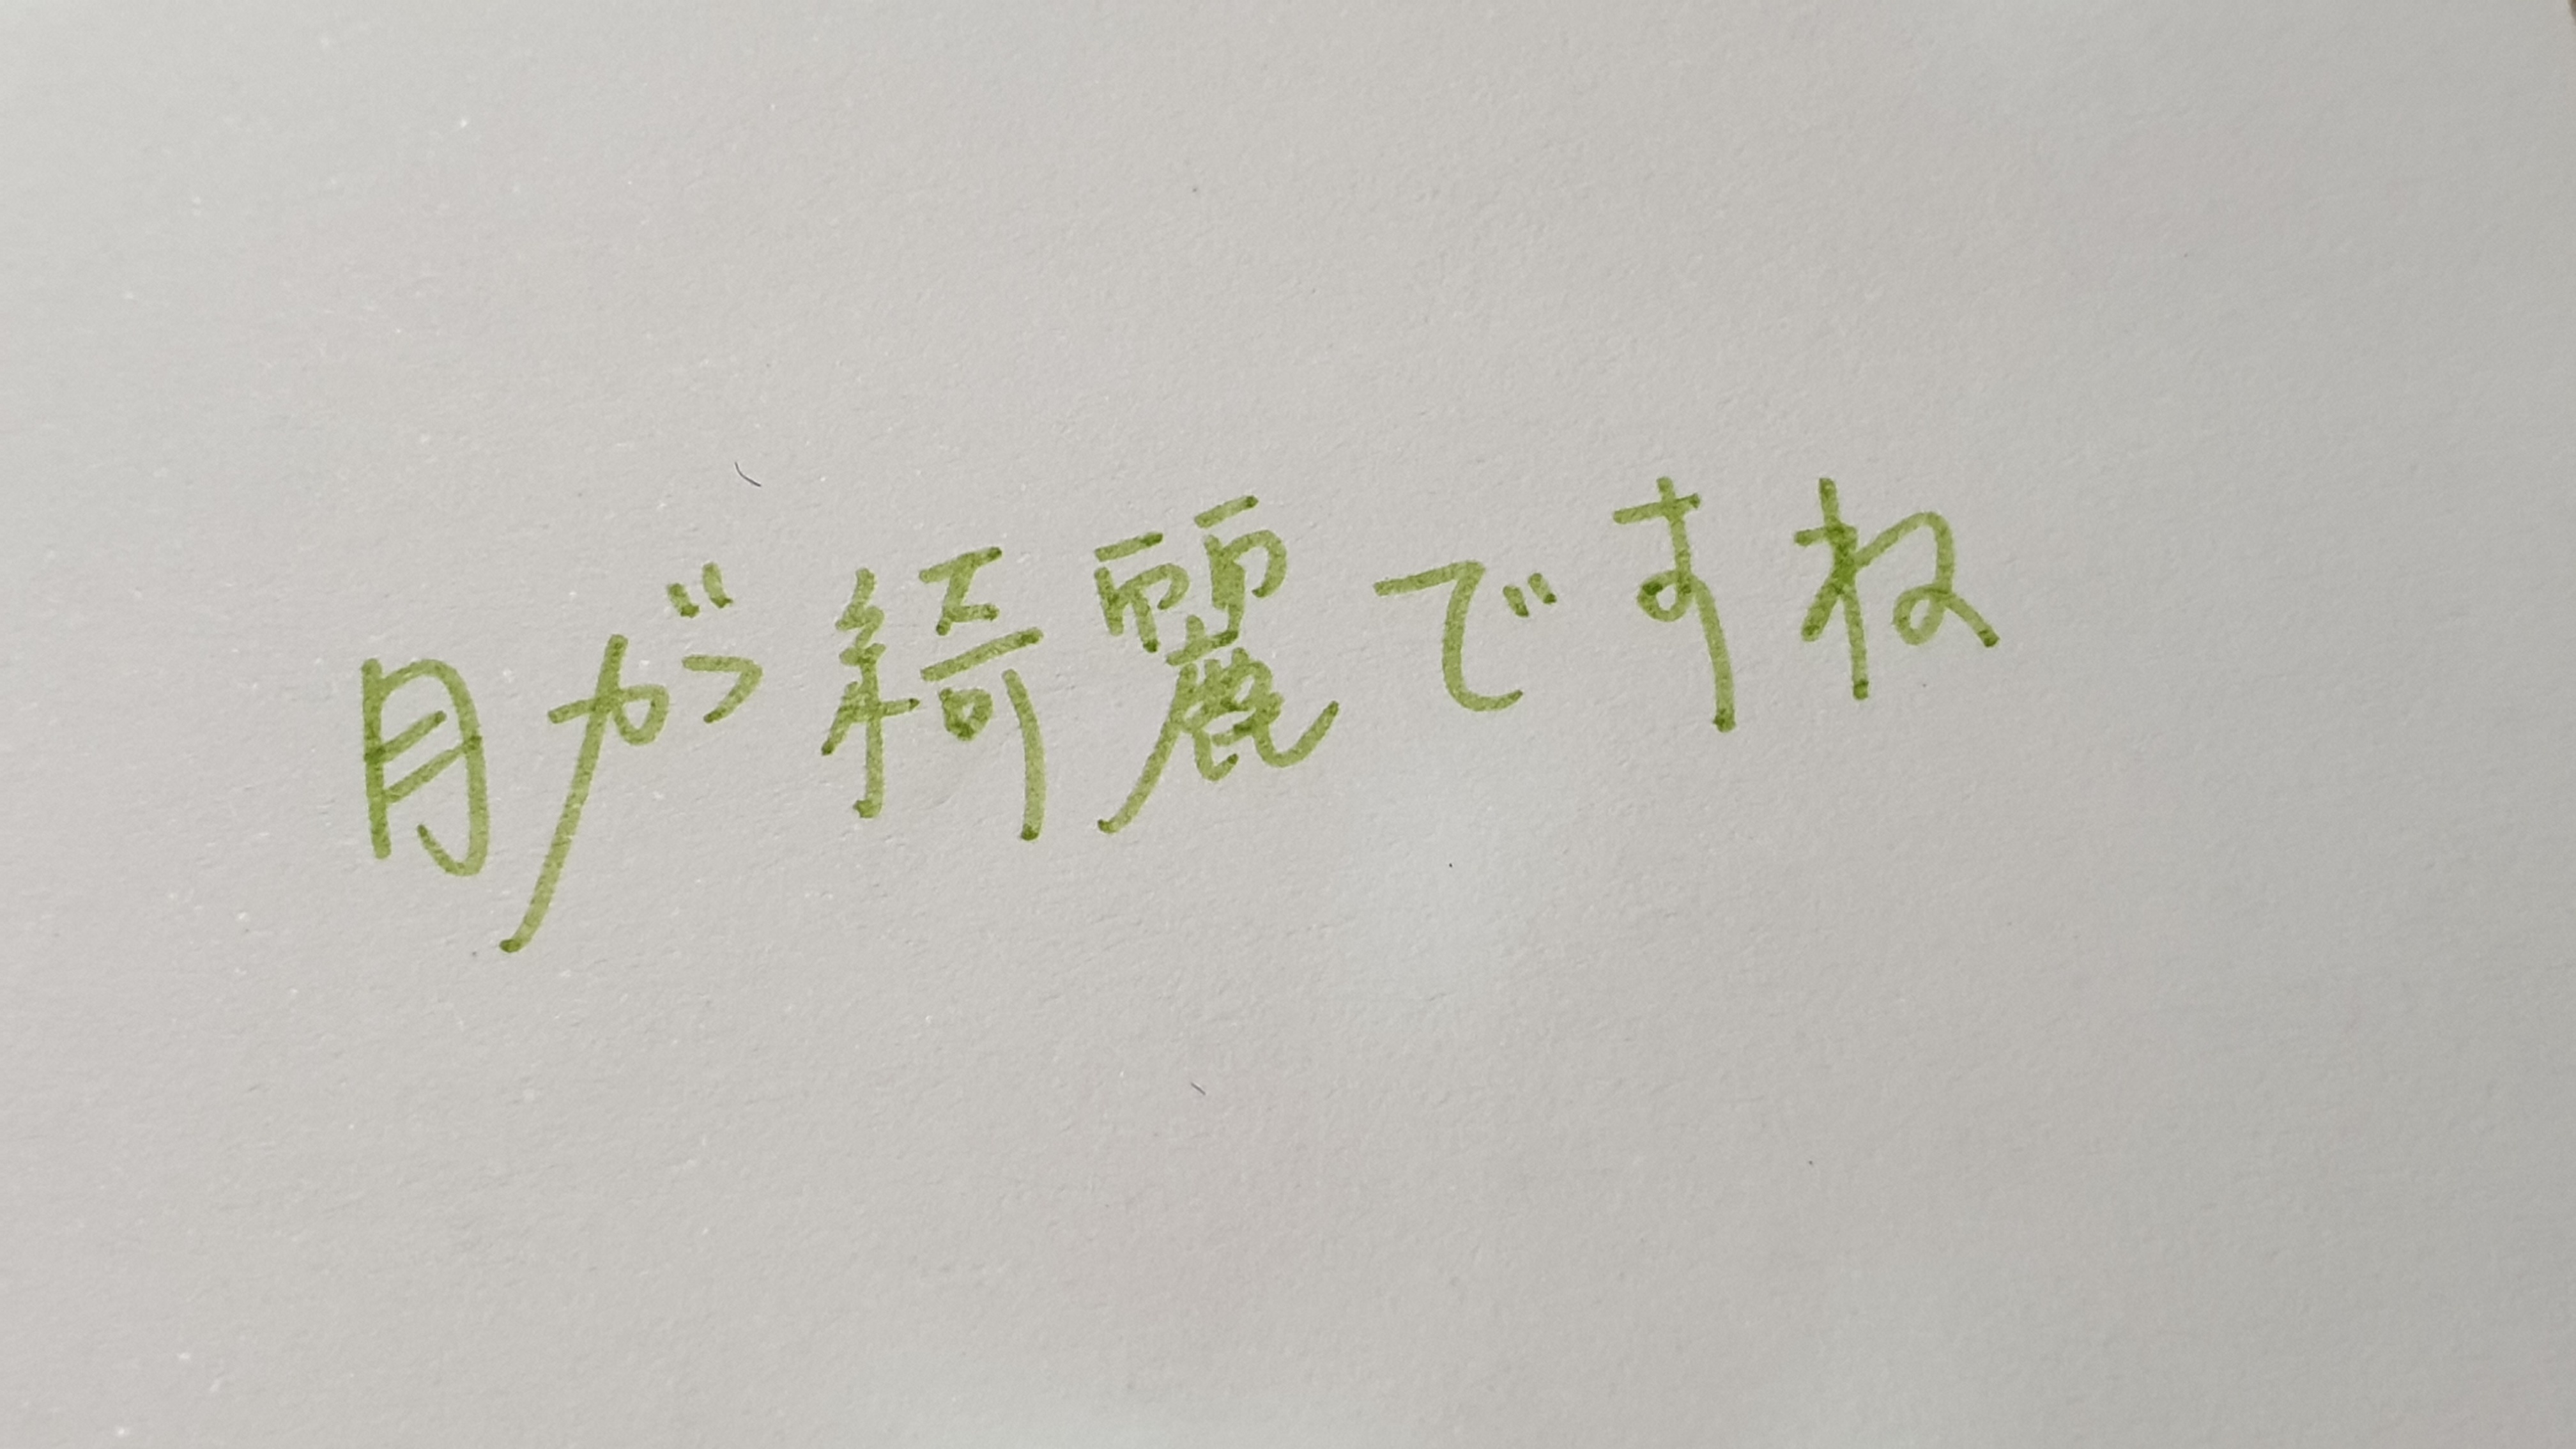 月が綺麗ですね